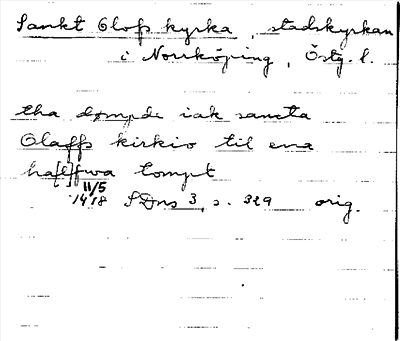 Sankt Olofs kyrka, stadskyrkan
i Norrköping, Östg. l.
tha dømpde iak sancta
Olaffs kirkio til ena
ha[l]ffwa tompt
11/5
1418 SDns 3, s. 329 orig.